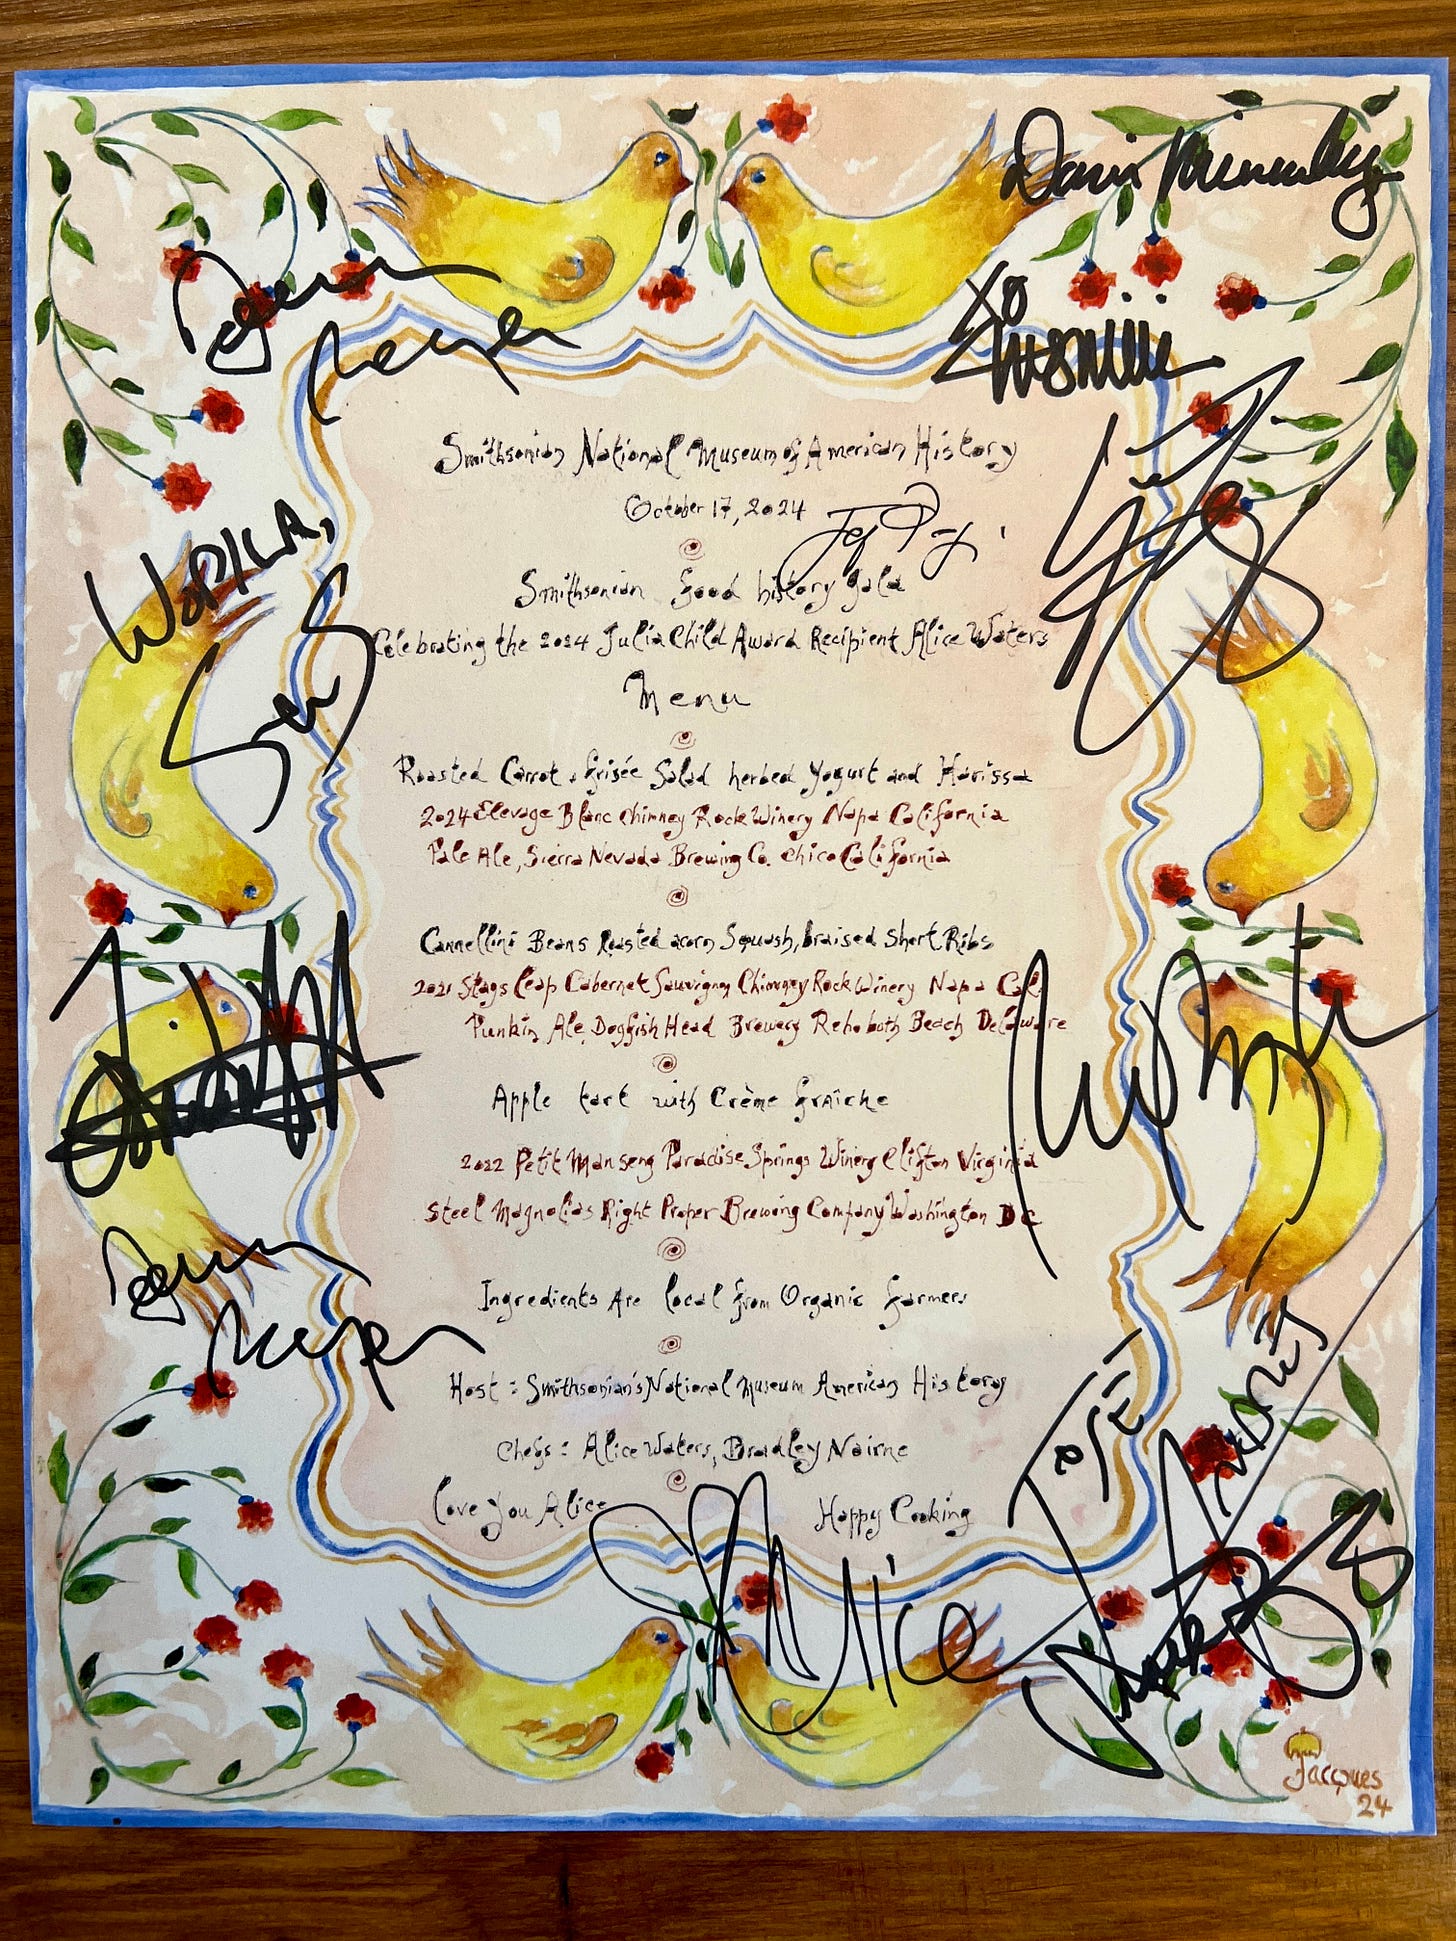 XO
Smithsonian National Museum of American History
October 17, 2024
Smithsonian food history gala
Celebrating the 2024 Julia Child Award Recipient Alice Waters
Menu
Roasted Carrot & Frisée Salad herbed Yogurt and Harissa
2024 Elevage Blanc Chimney Rock Winery Napa California
Pale Ale, Sierra Nevada Brewing Co. Chico California
Cannellini Beans Roasted acorn Squash, braised Short Ribs
2021 Stags Leap Cabernet Sauvignon Chimney Rock Winery Napa Cal.
Punkin Ale, Dogfish Head Brewery Rehoboth Beach Delaware
Apple tart with Crème Fraîche
2022 Petit Manseng Paradise Springs Winery Clifton Virginia
Steel Magnolias Right Proper Brewing Company Washington DC
Ingredients Are local from Organic farmers
Host: Smithsonian's National Museum American History
Chefs: Alice Waters, Bradley Nairne
Love You Alice
Happy Cooking
José
Andrés
Alice
Jacques
24